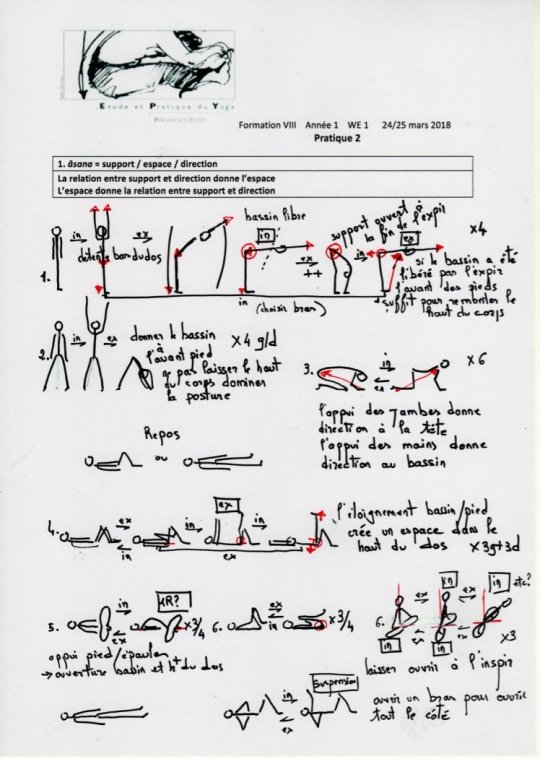 Etude et Pratique du Yoga
Formation VIII Année 1 WE 1 24/25 mars 2018
Pratique 2
1. âsana = support / espace / direction
La relation entre support et direction donne l'espace
L'espace donne la relation entre support et direction
1.
in
ex
détente bas du dos
bassin libre
in
ex
++
support ouvert à
la fin de l'expir
ex
x4
si le bassin a été
libéré par l'expir
l'avant des pieds
suffit pour remonter le
haut du corps
in
(choisir bras)
2.
in
ex
donner le bassin
à
l'avant pied
x4 g/d
par laisser le haut
du corps dominer
la posture
3.
in
ex
x6
l'appui des jambes donne
direction à la tête
l'appui des mains donne
direction au bassin
Repos
ou
4.
ex
in
in
ex
in
ex
l'éloignement bassin/pied
crée un espace dans le
haut du dos x3g+3d
5.
in
ex
KR?
x3/4
appui pied/épaules
→ ouverture bassin et ht du dos
6.
ex
in
x3/4
6.
in
ex
in
in
ex
in
in
etc?
x3
laisser ouvrir à l'inspir
ouvrir un bras pour ouvrir
tout le côté
in
ex
Suspension